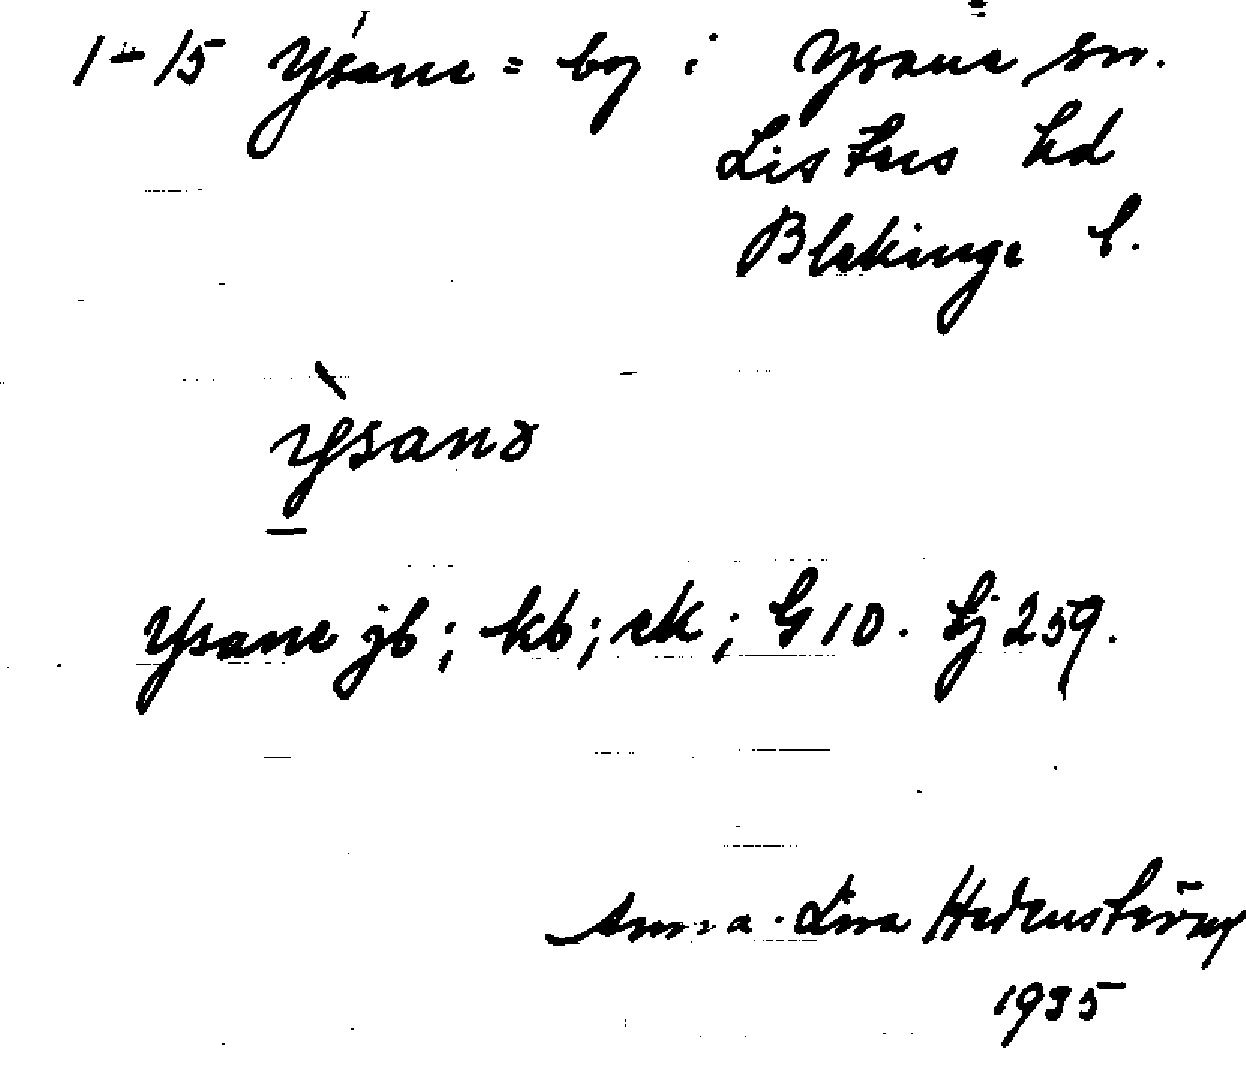 1-15 Ysane = by i Ysane sn.
Listers hd
Blekinge l.
ỳsanə
Ysane jb; kb; ek; G10. Lj 259.
Anna-Lisa Hedenstierna
1935